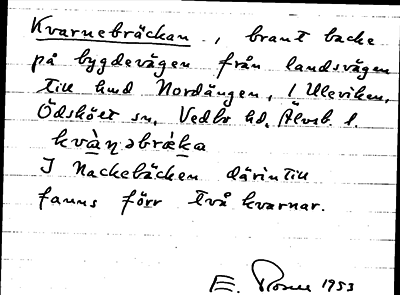 Kvarnebräckan, brant backe
på bygdevägen från landsvägen
till hmd Nordängen, i Uleviken,
Ödskölt sn, Vedbo hd. Älvsb. l.
kvàṇəbrǻka
I Nackebäcken därintill
fanns förr två kvarnar.
E. 1953